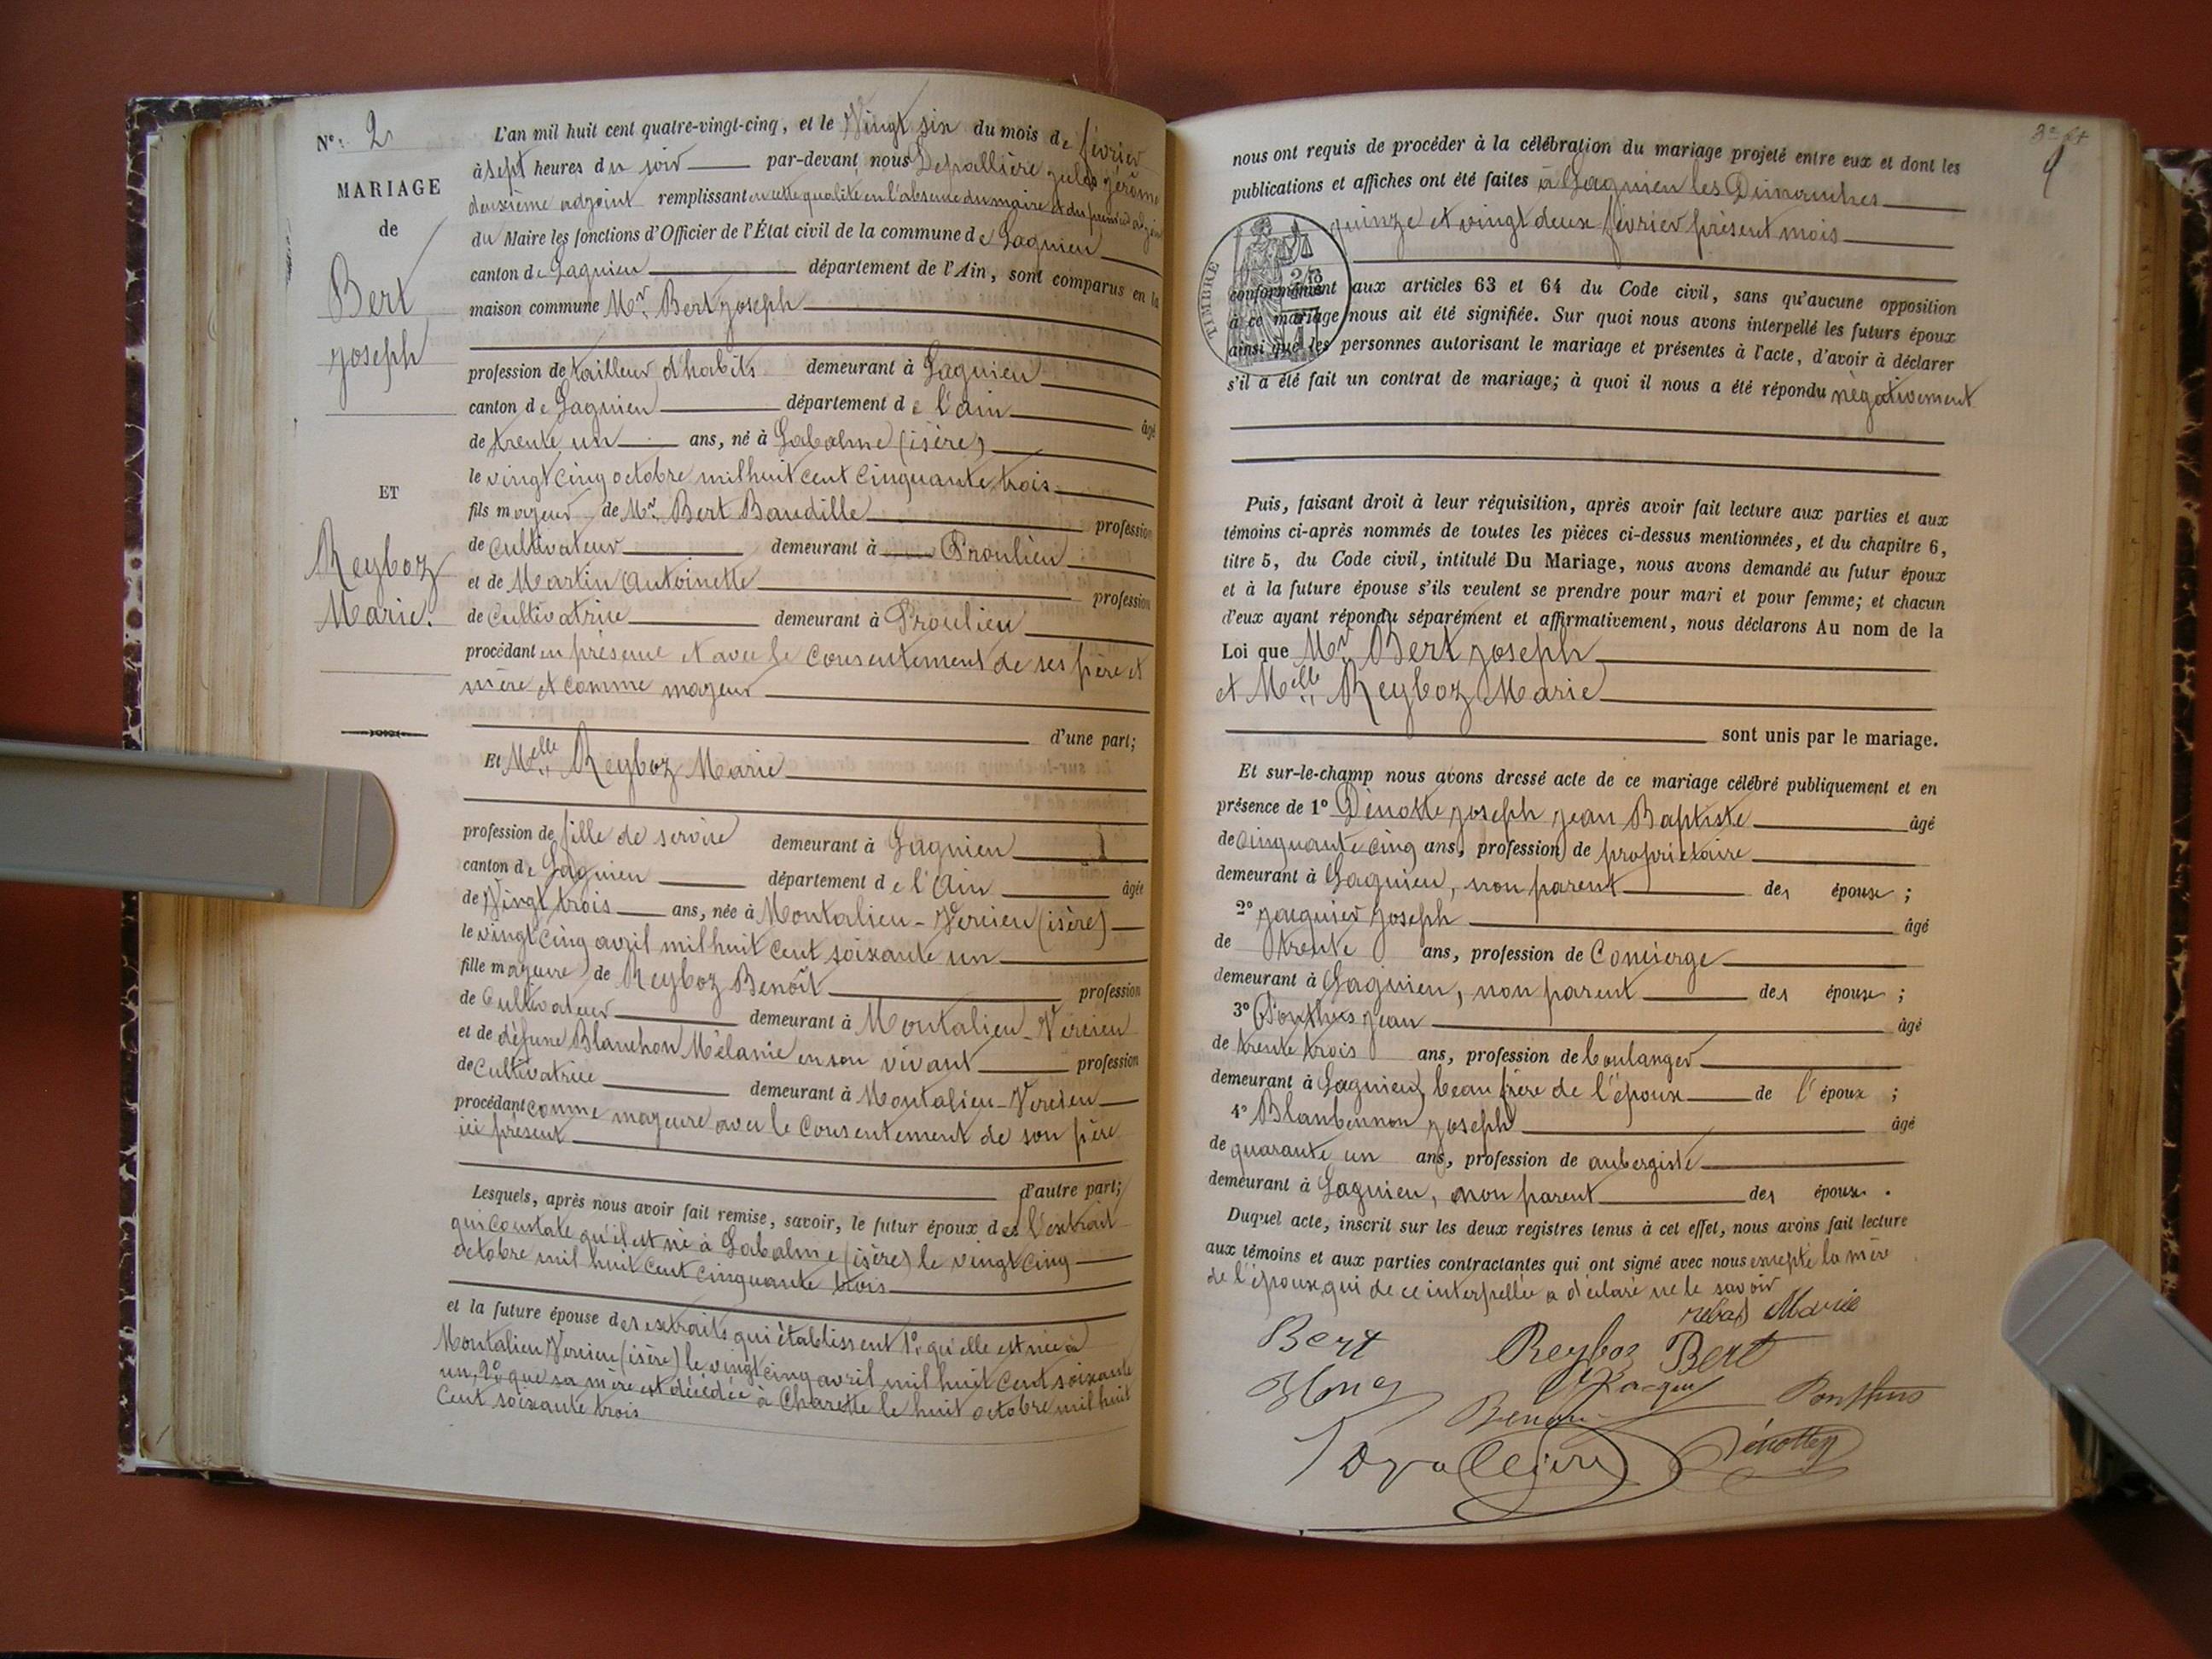 N°: 2
MARIAGE
de
Bert
joseph
ET
Reyboz
Marie.
L'an mil huit cent quatre-vingt-cinq, et le Vingt six du mois de février
à sept heures du soir par-devant nous Depallière jules jérôme
deuxième adjoint remplissant en cette qualité en l'absence du maire et du premier adjoint
du Maire les fonctions d'Officier de l'État civil de la commune de Lagnieu
canton de Lagnieu département de l'Ain, sont comparus en la
maison commune Mr. Bert joseph
profession de tailleur d'habits demeurant à Lagnieu
canton de Lagnieu département de l'ain âgé
de trente un ans, né à Labalme (isère)
le vingt cinq octobre mil huit cent cinquante trois
fils majeur de Mr. Bert Baudille profession
de cultivateur demeurant à Proulieu
et de Martin Antoinette profession
de cultivatrice demeurant à Proulieu
procédant en présence et avec le consentement de ses père et
mère et comme majeur
d'une part;
Et Melle Reyboz Marie
profession de fille de service demeurant à Lagnieu
canton de Lagnieu département de l'Ain âgée
de Vingt trois ans, née à Montalieu-Vercieu (isère)
le vingt cinq avril mil huit cent soixante un
fille majeure de Reyboz Benoît profession
de Cultivateur demeurant à Montalieu-Vercieu
et de défunte Blanchon Mélanie en son vivant profession
de Cultivatrice demeurant à Montalieu-Vercieu
procédant comme majeure avec le consentement de son père
ici présent
d'autre part;
Lesquels, après nous avoir fait remise, savoir, le futur époux de l'extrait
qui constate qu'il est né à Labalme (isère) le vingt cinq
octobre mil huit cent cinquante trois
et la future épouse des extraits qui établissent 1° qu'elle est née à
Montalieu Vercieu (isère) le vingt cinq avril mil huit cent soixante
un, 2° que sa mère est décédée à Charette le huit octobre mil huit
cent soixante trois
nous ont requis de procéder à la célébration du mariage projeté entre eux et dont les
publications et affiches ont été faites à Lagnieu les Dimanches
quinze et vingt deux février présent mois
TIMBRE
conformément aux articles 63 et 64 du Code civil, sans qu'aucune opposition
à ce mariage nous ait été signifiée. Sur quoi nous avons interpellé les futurs époux
ainsi que les personnes autorisant le mariage et présentes à l'acte, d'avoir à déclarer
s'il a été fait un contrat de mariage; à quoi il nous a été répondu négativement
Puis, faisant droit à leur réquisition, après avoir fait lecture aux parties et aux
témoins ci-après nommés de toutes les pièces ci-dessus mentionnées, et du chapitre 6,
titre 5, du Code civil, intitulé Du Mariage, nous avons demandé au futur époux
et à la future épouse s'ils veulent se prendre pour mari et pour femme; et chacun
d'eux ayant répondu séparément et affirmativement, nous déclarons Au nom de la
Loi que Mr Bert joseph
et Melle Reyboz Marie
sont unis par le mariage.
Et sur-le-champ nous avons dressé acte de ce mariage célébré publiquement et en
présence de 1° Dénotte joseph jean Baptiste âgé
de cinquante cinq ans, profession de propriétaire
demeurant à Lagnieu, non parent des époux;
2° jacquier joseph âgé
de trente ans, profession de Concierge
demeurant à Lagnieu, non parent des époux;
3° Ponthus jean âgé
de trente trois ans, profession de boulanger
demeurant à Lagnieu beau frère de l'époux de l'époux;
4° joseph âgé
de quarante un ans, profession de aubergiste
demeurant à Lagnieu, non parent des époux.
Duquel acte, inscrit sur les deux registres tenus à cet effet, nous avons fait lecture
aux témoins et aux parties contractantes qui ont signé avec nous excepté la mère
de l'époux qui de ce interpellée a déclaré ne le savoir
Marie
Bert Reyboz Bert
Ponthus